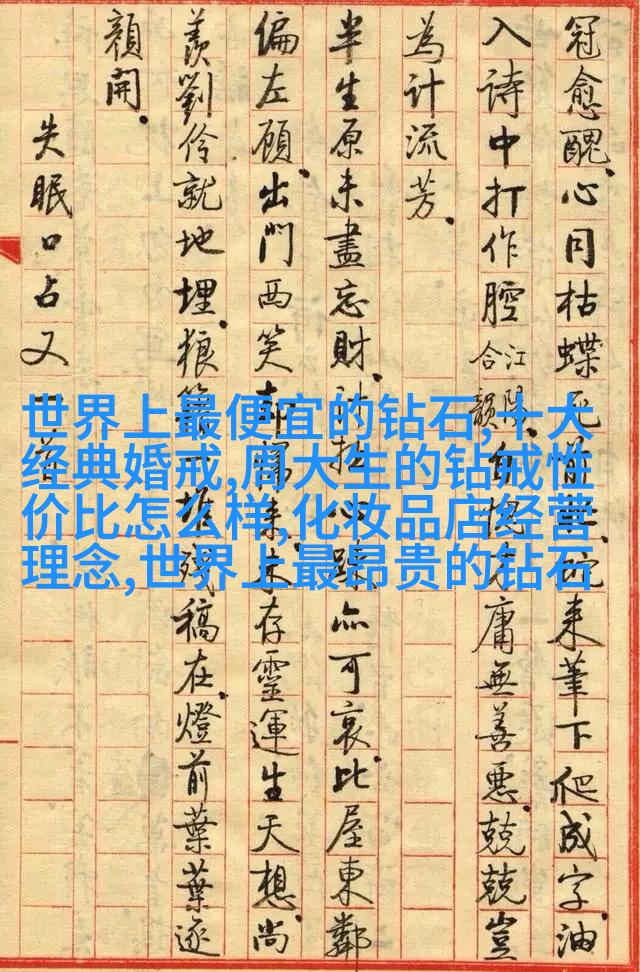 冠愈醜。心同枯蝶来筆下爬成字。油
入詩中打作腔合江陽韻自愧才庸無善惡。兢兢豈
為計流芳。
半生原未盡忘財。計拙心勞亦可哀。比屋東鄰
偏左顧。出門西笑却歸来。未存靈運生天想。尚
羨劉伶就地埋。狼籍一堆殘稿在。燈前葉葉逐
顔開。
失眠口占又一首
世界上最便宜的钻石,十大
经典婚戒,周大生的钻戒性
价比怎么样,化妆品店经营
理念,世界上最昂贵的钻石